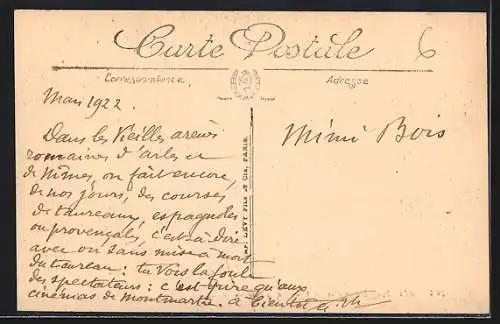 Carte Postale
6
Correspondance
Adresse
Mars 1922.
Dans les vieilles arènes
romaines d'arles et
de Nîmes, on fait encore,
de nos jours, des courses
de taureaux, espagnoles
ou provençales, c'est-à-dire
avec ou sans mise à mort
du taureau : tu vois la foule
des spectateurs : c'est pire qu'aux
cinémas de Montmartre. à bientôt
Mimi Bois
LÉVY FILS ET CIE, PARIS